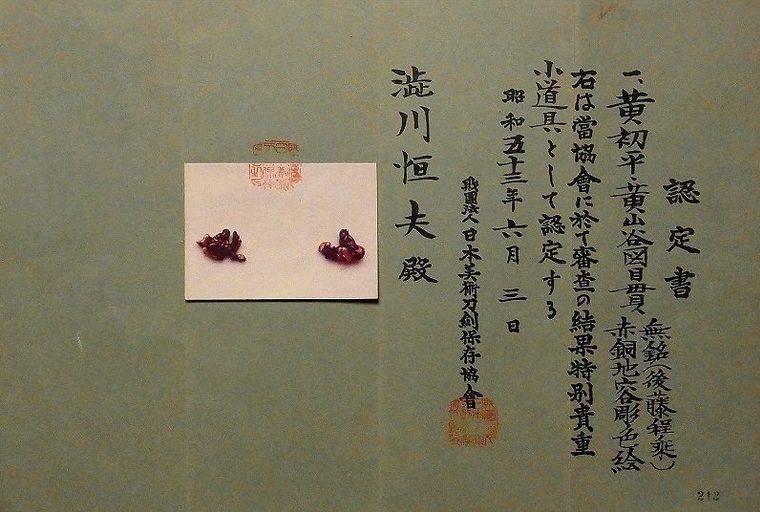 認定書
一、黄初平黄山谷図目貫、
無銘(後藤程乗)
赤銅地容彫色絵
右は當協會に於て審査の結果特別貴重
小道具として認定する
昭和五十三年六月三日
財團法人日本美術刀劍保存協會
澁川恒夫殿
212